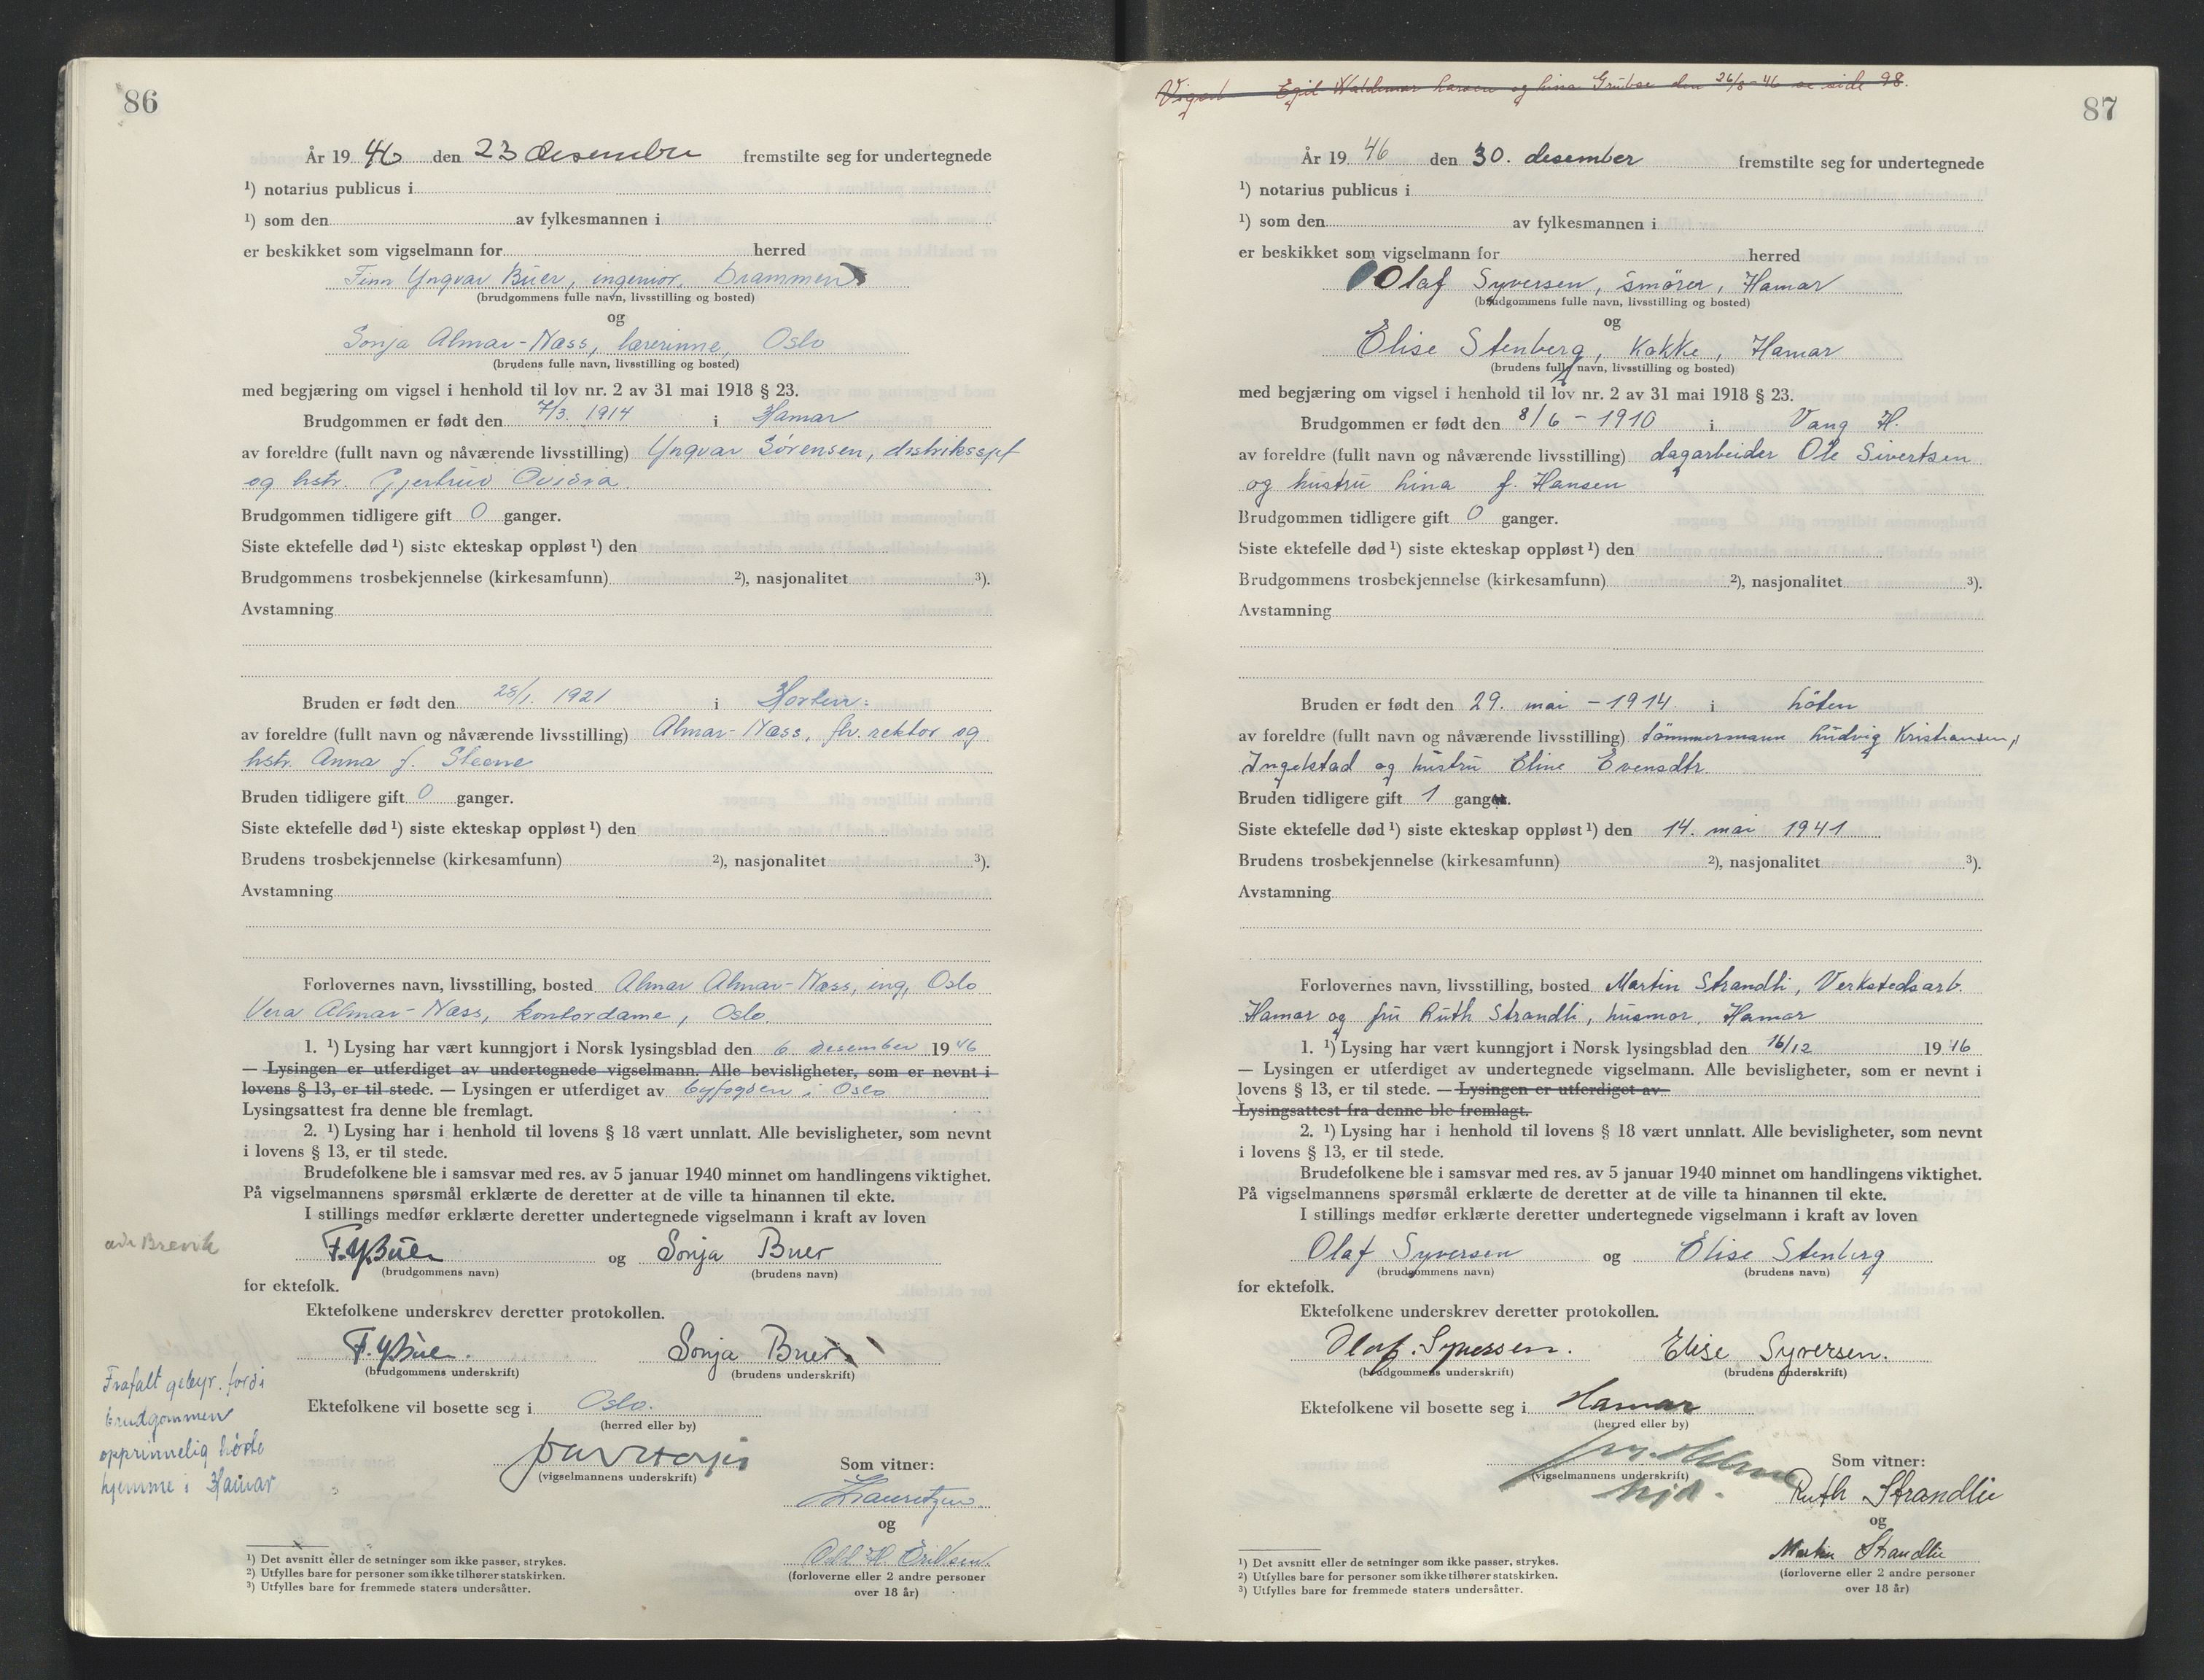 86
År 19 46 den 23 desember fremstilte seg for undertegnede
¹) notarius publicus i
¹) som den av fylkesmannen i
er beskikket som vigselmann for herred
Finn Yngvar Buer, ingeniør, Drammen
(brudgommens fulle navn, livsstilling og bosted)
og
Sonja Almar-Næss, lærerinne, Oslo
(brudens fulle navn, livsstilling og bosted)
med begjæring om vigsel i henhold til lov nr. 2 av 31 mai 1918 § 23.
Brudgommen er født den 7/3. 1914 i Hamar
av foreldre (fullt navn og nåværende livsstilling) Yngvar Sørensen,
og hstr. Gjertrud
Brudgommen tidligere gift 0 ganger.
Siste ektefelle død ¹) siste ekteskap oppløst ¹) den
Brudgommens trosbekjennelse (kirkesamfunn) ²), nasjonalitet ³).
Avstamning
Bruden er født den 28/1. 1921 i Horten.
av foreldre (fullt navn og nåværende livsstilling) Almar-Næss, fhv. rektor og
hstr. Anna f. Steene
Bruden tidligere gift 0 ganger.
Siste ektefelle død ¹) siste ekteskap oppløst ¹) den
Brudens trosbekjennelse (kirkesamfunn) ²), nasjonalitet ³).
Avstamning
Forlovernes navn, livsstilling, bosted Almar Almar-Næss, ing, Oslo
Vera Almar-Næss, kontordame, Oslo.
1. ¹) Lysing har vært kunngjort i Norsk lysingsblad den 6. desember 19 46
— Lysingen er utferdiget av undertegnede vigselmann. Alle bevisligheter, som er nevnt i
lovens § 13, er til stede. — Lysingen er utferdiget av byfogden i Oslo
Lysingsattest fra denne ble fremlagt.
2. ¹) Lysing har i henhold til lovens § 18 vært unnlatt. Alle bevisligheter, som nevnt
i lovens § 13, er til stede.
Brudefolkene ble i samsvar med res. av 5 januar 1940 minnet om handlingens viktighet.
På vigselmannens spørsmål erklærte de deretter at de ville ta hinannen til ekte.
I stillings medfør erklærte deretter undertegnede vigselmann i kraft av loven
Brevik
F.Y. Buer og Sonja Buer
(brudgommens navn) (brudens navn)
for ektefolk.
Ektefolkene underskrev deretter protokollen.
F.Y. Buer. Sonja Buer
(brudgommens underskrift) (brudens underskrift)
Frafalt gebyr. fordi
brudgommen
opprinnelig hørte
hjemme i Hamar
Ektefolkene vil bosette seg i Oslo.
(herred eller by)
(vigselmannens underskrift)
Som vitner:
og
Odd H. Eriksen
(forloverne eller 2 andre personer
over 18 år)
¹) Det avsnitt eller de setninger som ikke passer, strykes.
²) Utfylles bare for personer som ikke tilhører statskirken.
³) Utfylles bare for fremmede staters undersåtter.
Vigsel Egil Waldemar Larsen og Lina Grubse den 26/8-46 se side 98.
87
År 19 46 den 30. desember fremstilte seg for undertegnede
¹) notarius publicus i
¹) som den av fylkesmannen i
er beskikket som vigselmann for herred
Olaf Syversen, smører, Hamar
(brudgommens fulle navn, livsstilling og bosted)
og
Elise Stenberg, kokke, Hamar
(brudens fulle navn, livsstilling og bosted)
med begjæring om vigsel i henhold til lov nr. 2 av 31 mai 1918 § 23.
Brudgommen er født den 8/6 - 1910 i Vang H.
av foreldre (fullt navn og nåværende livsstilling) dagarbeider Ole Sivertsen
og hustru Lina f. Hansen
Brudgommen tidligere gift 0 ganger.
Siste ektefelle død ¹) siste ekteskap oppløst ¹) den
Brudgommens trosbekjennelse (kirkesamfunn) ²), nasjonalitet ³).
Avstamning
Bruden er født den 29. mai - 1914 i Löten
av foreldre (fullt navn og nåværende livsstilling) tömmermann Ludvig Kristiansen,
Ingelstad og hustru Eline Evensdtr.
Bruden tidligere gift 1 gang.
Siste ektefelle død ¹) siste ekteskap oppløst ¹) den 14. mai 1941
Brudens trosbekjennelse (kirkesamfunn) ²), nasjonalitet ³).
Avstamning
Forlovernes navn, livsstilling, bosted Martin Strandli, Verkstedsarb.
Hamar og fru Ruth Strandli, husmor, Hamar
1. ¹) Lysing har vært kunngjort i Norsk lysingsblad den 16/12 19 46
— Lysingen er utferdiget av undertegnede vigselmann. Alle bevisligheter, som er nevnt i
lovens § 13, er til stede. — Lysingen er utferdiget av
Lysingsattest fra denne ble fremlagt.
2. ¹) Lysing har i henhold til lovens § 18 vært unnlatt. Alle bevisligheter, som nevnt
i lovens § 13, er til stede.
Brudefolkene ble i samsvar med res. av 5 januar 1940 minnet om handlingens viktighet.
På vigselmannens spørsmål erklærte de deretter at de ville ta hinannen til ekte.
I stillings medfør erklærte deretter undertegnede vigselmann i kraft av loven
Olaf Syversen og Elise Stenberg
(brudgommens navn) (brudens navn)
for ektefolk.
Ektefolkene underskrev deretter protokollen.
Olaf. Syversen. Elise Syversen.
(brudgommens underskrift) (brudens underskrift)
Ektefolkene vil bosette seg i Hamar
(herred eller by)
(vigselmannens underskrift)
Som vitner:
Ruth Strandlie
og
Martin Strandlie
(forloverne eller 2 andre personer
over 18 år)
¹) Det avsnitt eller de setninger som ikke passer, strykes.
²) Utfylles bare for personer som ikke tilhører statskirken.
³) Utfylles bare for fremmede staters undersåtter.